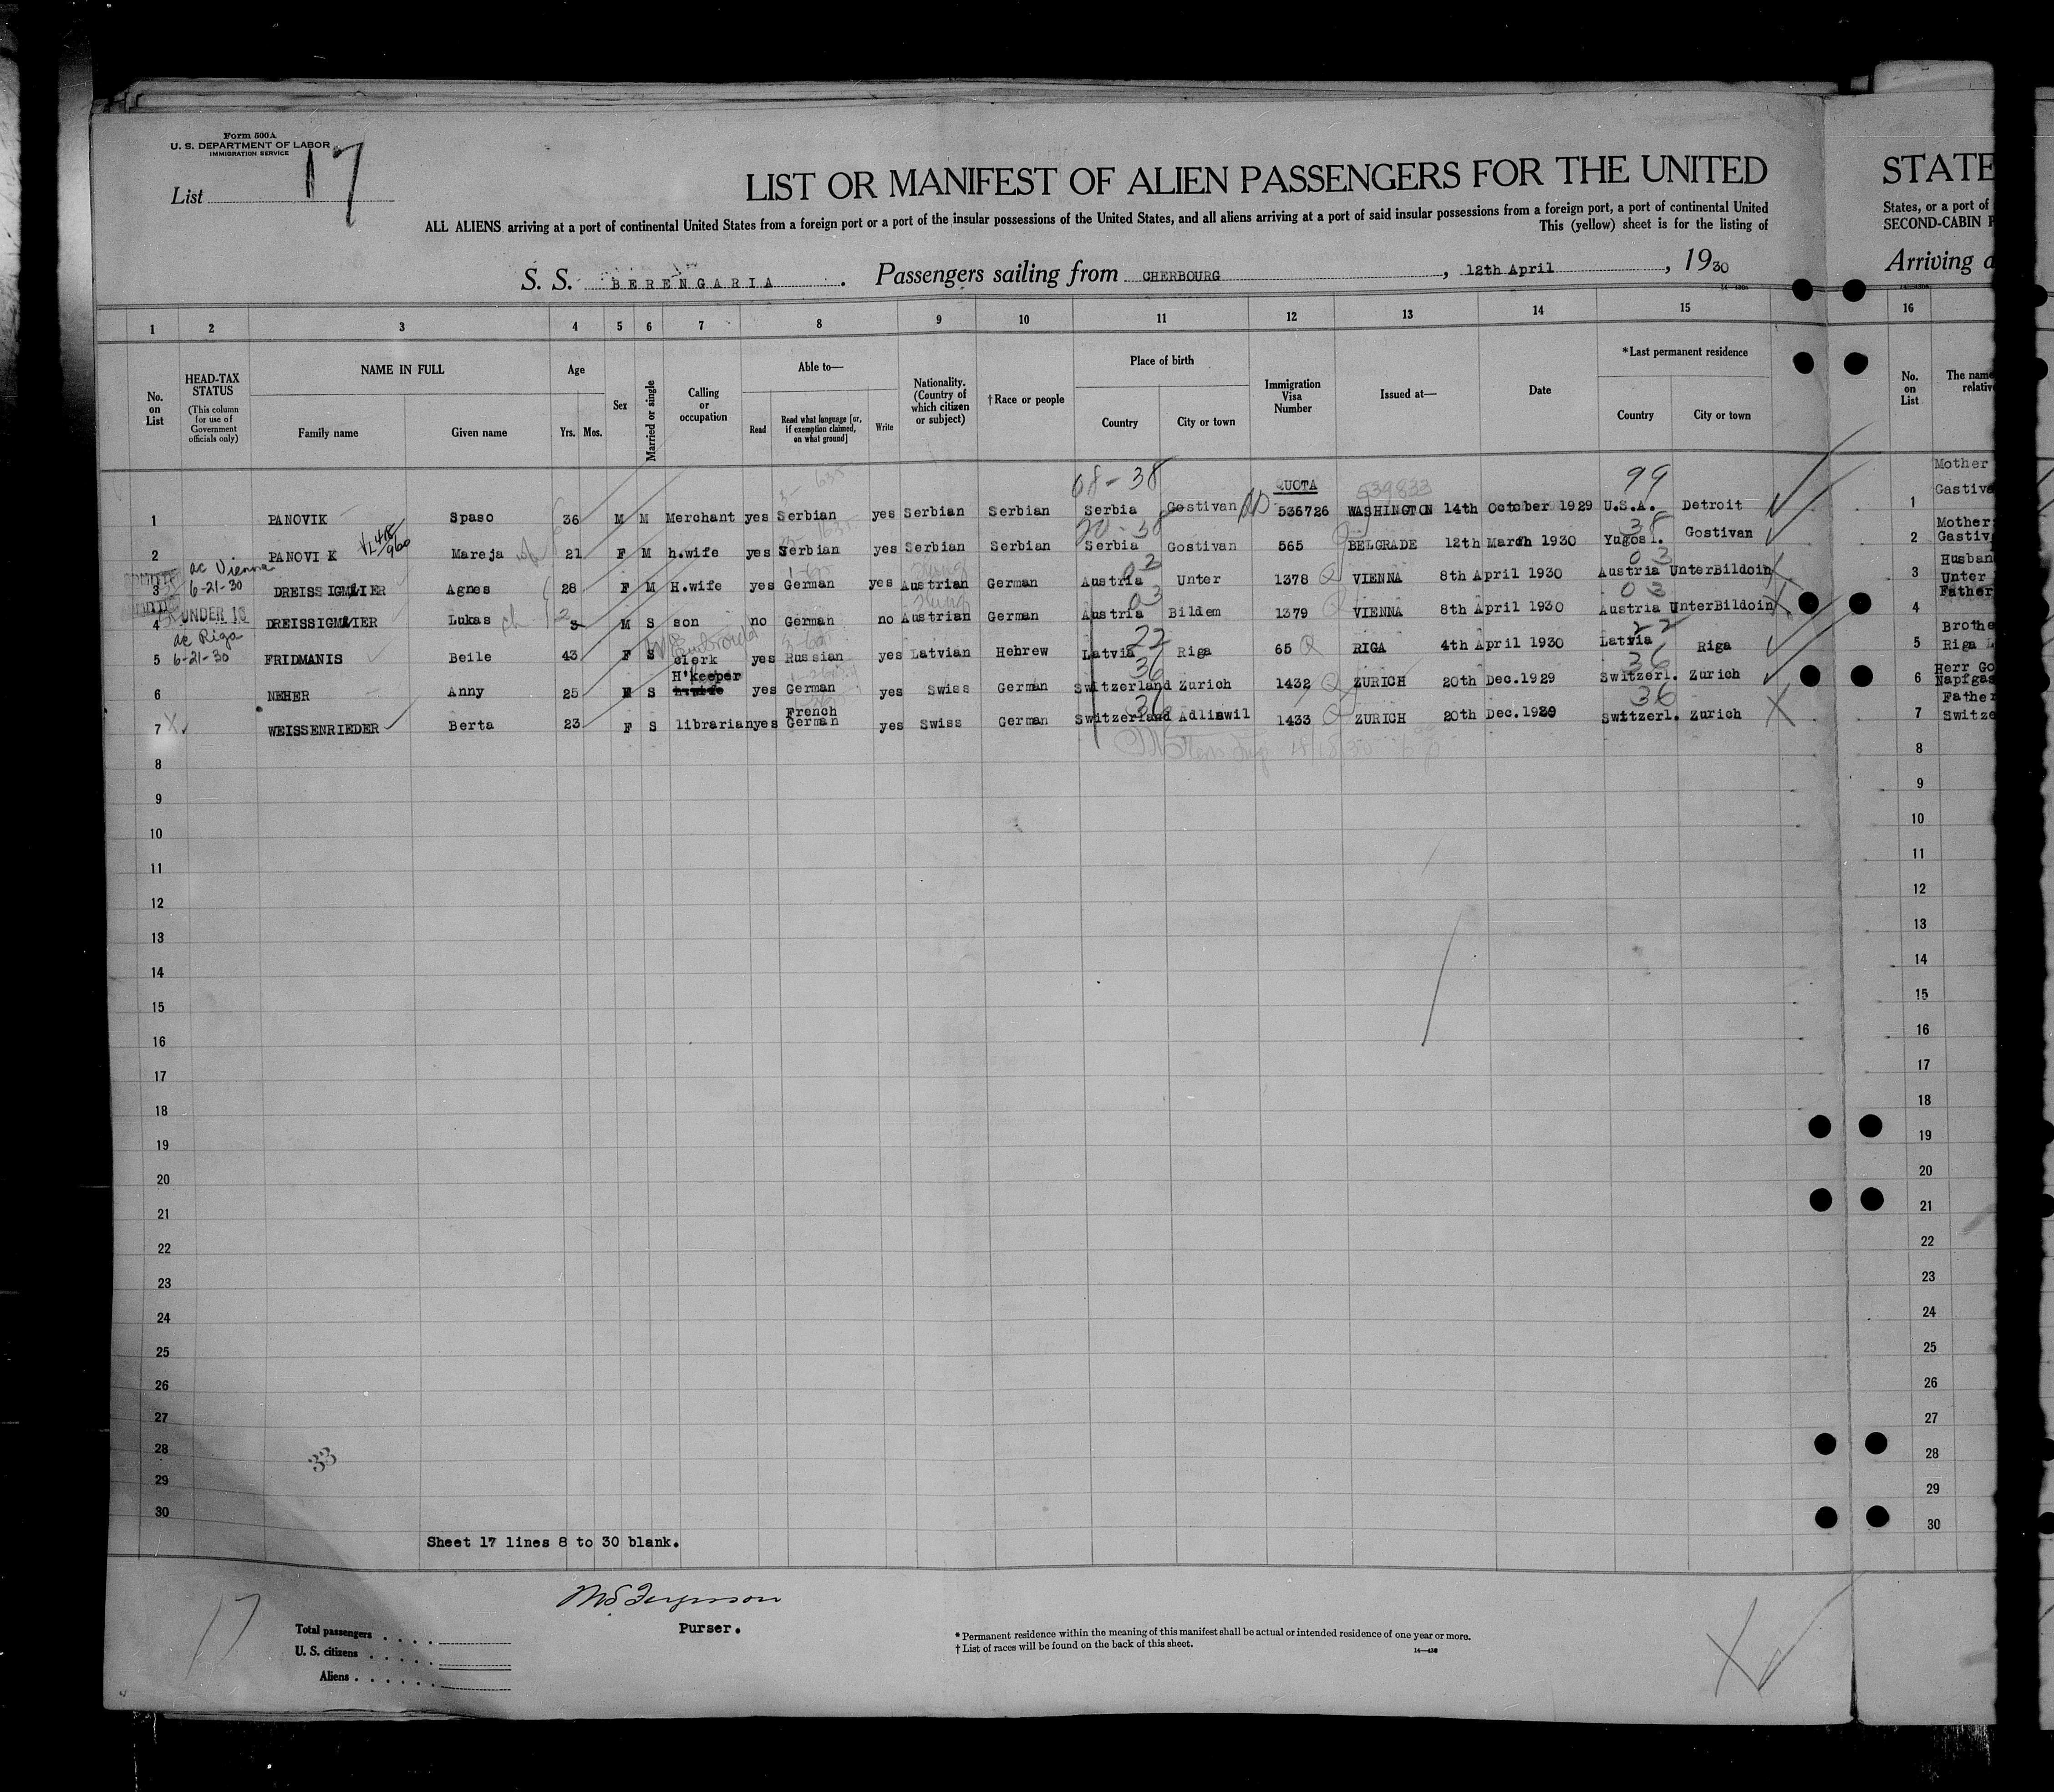 Form 500A
U. S. DEPARTMENT OF LABOR
IMMIGRATION SERVICE
List 17
LIST OR MANIFEST OF ALIEN PASSENGERS FOR THE UNITED
STATE
ALL ALIENS arriving at a port of continental United States from a foreign port or a port of the insular possessions of the United States, and all aliens arriving at a port of said insular possessions from a foreign port, a port of continental United
States, or a port of
This (yellow) sheet is for the listing of
SECOND-CABIN P
S. S. BERENGARIA . Passengers sailing from CHERBOURG , 12th April , 1930
Arriving a
1 2 3 4 5 6 7 8 9 10 11 12 13 14 15 16
No. on List
HEAD-TAX STATUS
(This column for use of Government officials only)
NAME IN FULL
Family name Given name
Age
Yrs. Mos.
Sex
Married or single
Calling or occupation
Able to—
Read
Read what language [or, if exemption claimed, on what ground]
Write
Nationality. (Country of which citizen or subject)
† Race or people
Place of birth
Country City or town
Immigration Visa Number
Issued at—
Date
*Last permanent residence
Country City or town
No. on List
The name
relativ
68-38 QUOTA 539833 99 Mother
1 PANOVIK Spaso 36 M M Merchant yes Serbian yes Serbian Serbian Serbia Gostivan 536726 WASHINGTON 14th October 1929 U.S.A. Detroit 1 Gastiva
2 PANOVIK Mareja 21 F M h.wife yes Serbian yes Serbian Serbian Serbia Gostivan 565 BELGRADE 12th March 1930 Yugosl. Gostivan 2 Mother Gastiv
ac Vienna 6-21-30
3 DREISSIGMLIER Agnes 28 F M H.wife yes German yes Austrian German Austria Unter 1378 VIENNA 8th April 1930 Austria UnterBildoin 3 Husban Unter
UNDER 16
4 DREISSIGMLIER Lukas 3 M S son no German no Austrian German Austria Bildem 1379 VIENNA 8th April 1930 Austria UnterBildoin 4 Father
ac Riga 6-21-30
5 FRIDMANIS Beile 43 F S clerk yes Russian yes Latvian Hebrew Latvia 22 Riga 65 RIGA 4th April 1930 Latvia Riga 5 Brothe Riga L
H'keeper
6 NEHER Anny 25 F S h.wife yes German yes Swiss German Switzerland 36 Zurich 1432 ZURICH 20th Dec.1929 Switzerl. 36 Zurich 6 Herr Go Napfgas
French
7 WEISSENRIEDER Berta 23 F S librarian yes German yes Swiss German Switzerland 36 Adliswil 1433 ZURICH 20th Dec.1929 Switzerl. 36 Zurich 7 Father Switze
8 8
9 9
10 10
11 11
12 12
13 13
14 14
15 15
16 16
17 17
18 18
19 19
20 20
21 21
22 22
23 23
24 24
25 25
26 26
27 27
28 33 28
29 29
30 30
Sheet 17 lines 8 to 30 blank.
17
Purser.
Total passengers
U. S. citizens
Aliens
* Permanent residence within the meaning of this manifest shall be actual or intended residence of one year or more.
† List of races will be found on the back of this sheet.
14—430